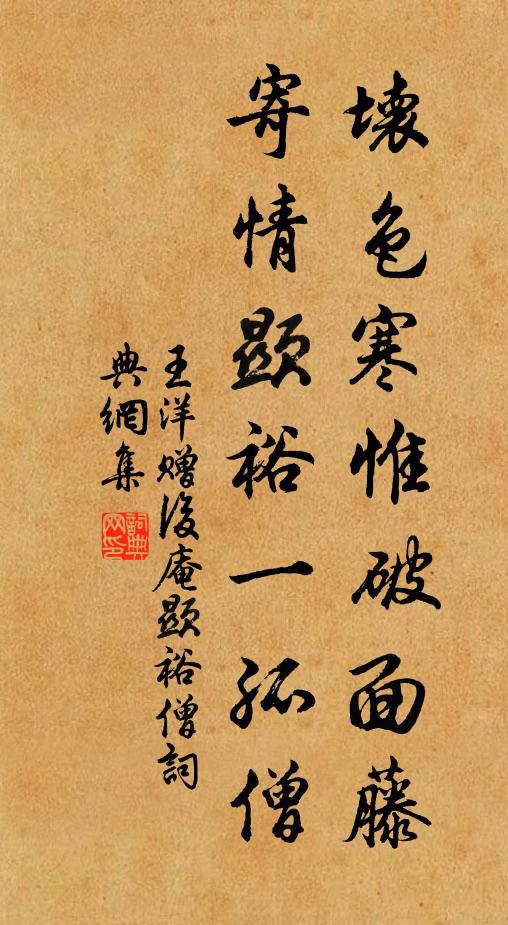 壞色寒惟破面藤
寄情顯裕一孤僧
王洋贈後庵顯裕僧詞
典網集
詞典
网印